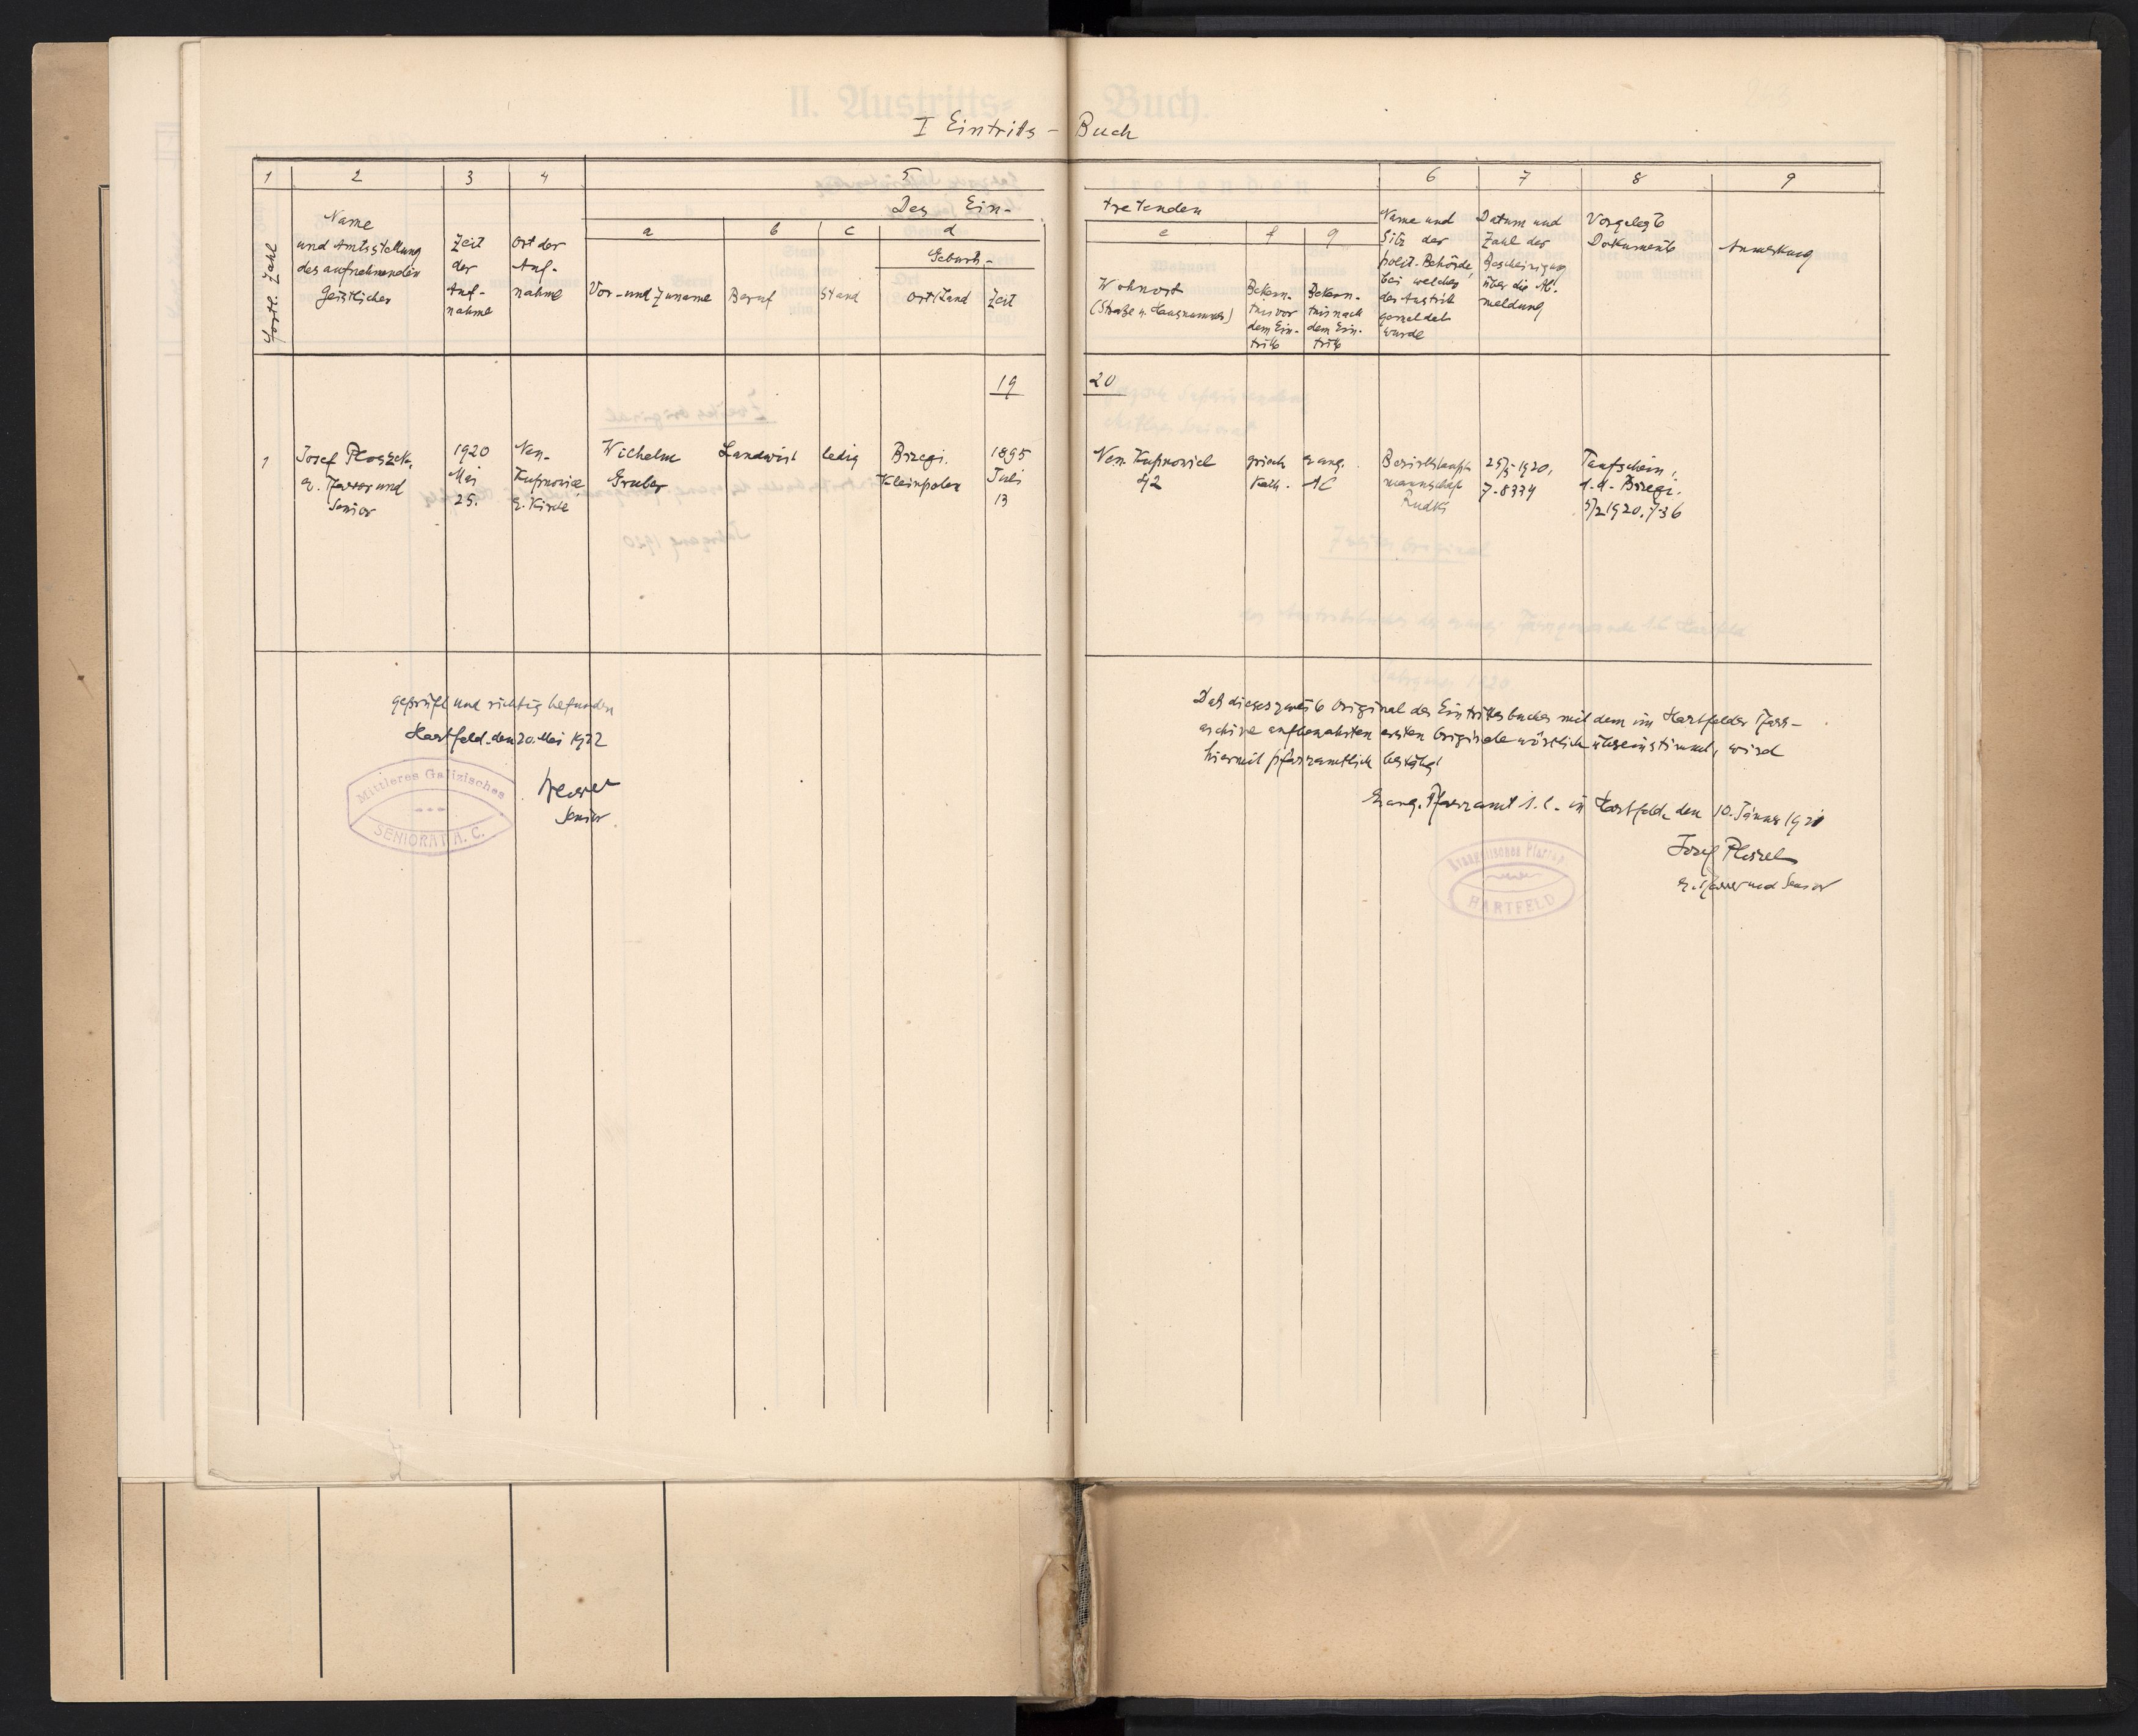 I Eintritts - Buch
1 2 3 4 5 6 7 8 9
Des Ein-
tretenden
Fortl. Zahl
Name
und Amtsstellung
des aufnehmenden
Geistlichen
Zeit
der
Auf-
nahme
Ort der
Auf-
nahme
a b c d
Vor- und Zuname
Beruf
Stand
Geburts-
Ort (Land
Zeit
e f g
Wohnort
(Straße u. Hausnummer)
Beken-
tnis vor
dem Ein-
tritt
Beken-
tnis nach
dem Ein-
tritt
Name und
Sitz der
polit. Behörde,
bei welcher
der Austritt
gemeldet
wurde
Datum und
Zahl der
Bescheinigung
über die Ab-
meldung
Vorgelegte
Dokumente
Anmerkung
19 20
1
Josef Ploszek,
e. Pfarrer und
Senior
1920
Mai
25.
Neu-
Kupnovice
e. Kirche
Wilhelm
Gruber
Landwirt
ledig
Brzegi.
Kleinpolen
1895
Juli
13
Neu Kupnovice
42
griech
kath.
evang.
AC
Bezirkshaupt-
mannschaft
Rudki
25/5 1920,
Z. 8334
Taufschein,
d.d. Brzegi.
5/2 1920. Z. 36
geprüft und richtig befunden
Hartfeld, den 20. Mai 1922
Senior
Mittleres Galizisches
SENIORAT A. C.
Daß dieses zweite Original des Eintrittsbuches mit dem im Hartfelder Pfarr-
archive aufbewahrten ersten Originale wörtlich übereinstimmt, wird
hiermit pfarramtlich bestätigt
Evang. Pfarramt A. C. in Hartfeld, den 10. Jänner 1921
Josef Ploszek
e. Pfarrer und Senior
HARTFELD
II. Austritts- Buch.